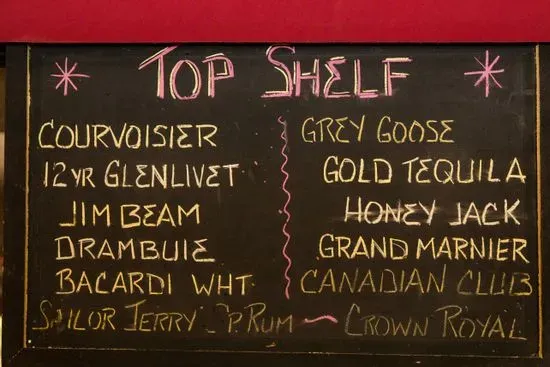 TOP SHELF
COURVOISIER
12 YR GLENLIVET
JIM BEAM
DRAMBUIE
BACARDI WHT
SAILOR JERRY SP. RUM
GREY GOOSE
GOLD TEQUILA
HONEY JACK
GRAND MARNIER
CANADIAN CLUB
CROWN ROYAL